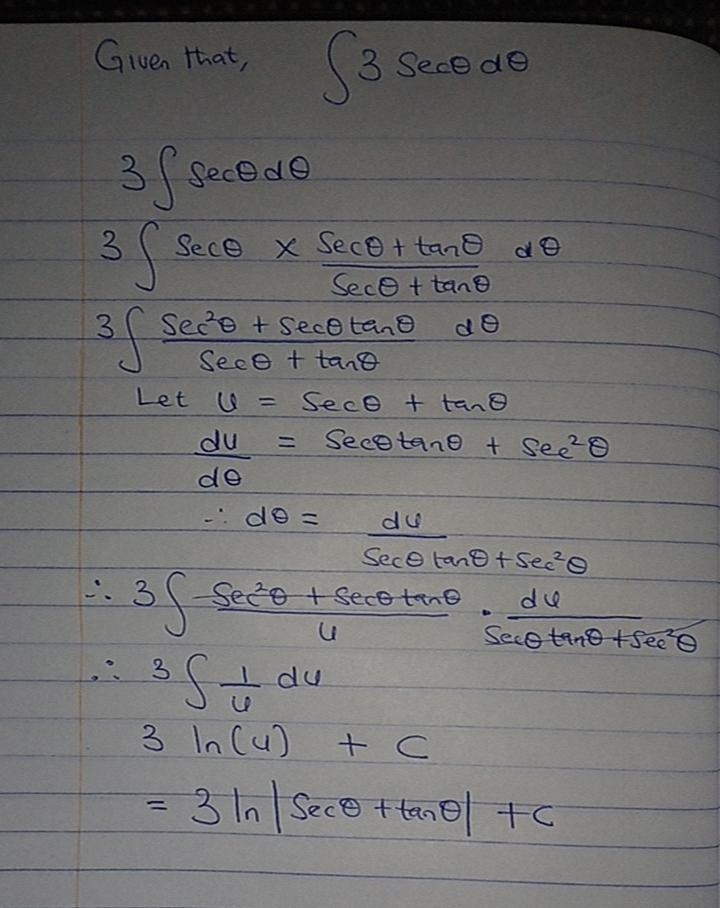 Given that, ∫3 Secθ dθ
3∫ Secθ dθ
3∫ Secθ × (Secθ + tanθ)/(Secθ + tanθ) dθ
3∫ (Sec²θ + Secθ tanθ)/(Secθ + tanθ) dθ
Let u = Secθ + tanθ
du/dθ = Secθ tanθ + Sec²θ
∴ dθ = du/(Secθ tanθ + Sec²θ)
∴ 3∫ (Sec²θ + Secθ tanθ)/u · du/(Secθ tanθ + Sec²θ)
∴ 3∫ 1/u du
3 ln(u) + C
= 3 ln|Secθ + tanθ| + C